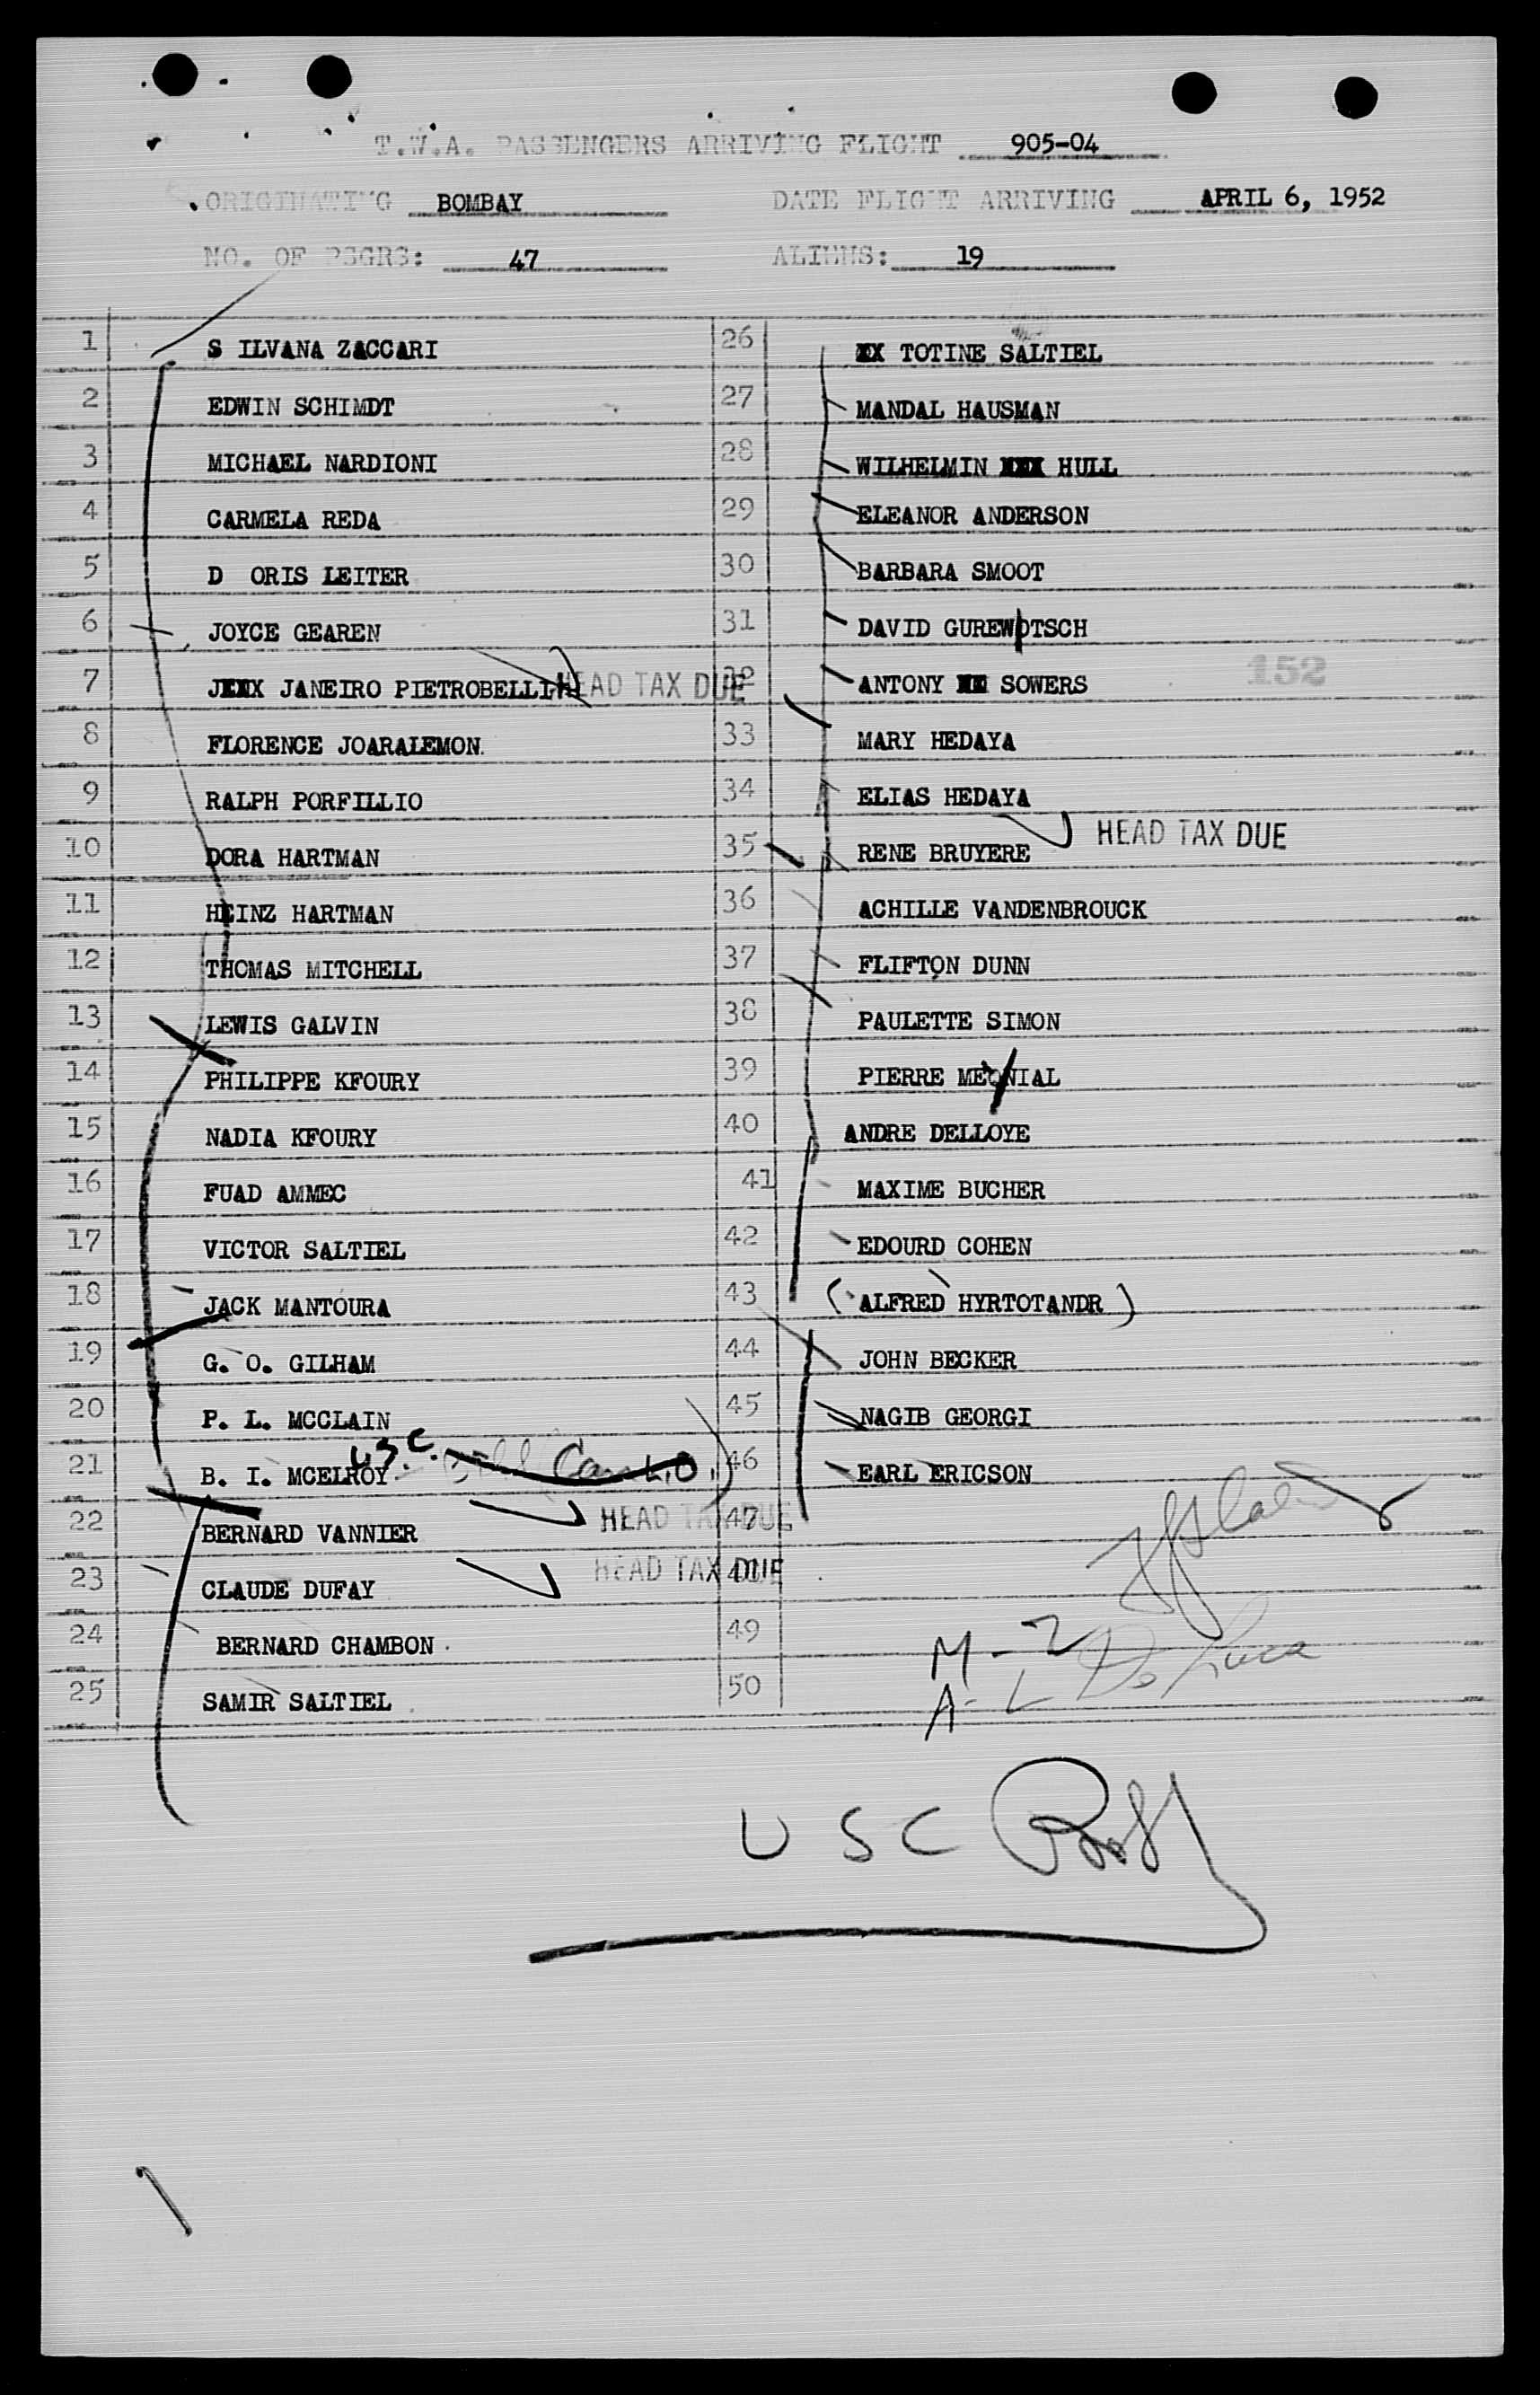 T.W.A. PASSENGERS ARRIVING FLIGHT 905-04
ORIGINATING BOMBAY DATE FLIGHT ARRIVING APRIL 6, 1952
NO. OF PSGRS: 47 ALIENS: 19
1 S ILVANA ZACCARI
2 EDWIN SCHIMDT
3 MICHAEL NARDIONI
4 CARMELA REDA
5 D ORIS LEITER
6 JOYCE GEAREN
7 JANEIRO PIETROBELLI HEAD TAX DUE
8 FLORENCE JOARALEMON.
9 RALPH PORFILLIO
10 DORA HARTMAN
11 HEINZ HARTMAN
12 THOMAS MITCHELL
13 LEWIS GALVIN
14 PHILIPPE KFOURY
15 NADIA KFOURY
16 FUAD AMMEC
17 VICTOR SALTIEL
18 JACK MANTOURA
19 G. O. GILHAM
20 P. L. MCCLAIN
21 B. I. MCELROY U.S.C.
22 BERNARD VANNIER HEAD TAX DUE
23 CLAUDE DUFAY HEAD TAX DUE
24 BERNARD CHAMBON
25 SAMIR SALTIEL
26 TOTINE SALTIEL
27 MANDAL HAUSMAN
28 WILHELMIN HULL
29 ELEANOR ANDERSON
30 BARBARA SMOOT
31 DAVID GUREWOTSCH
32 ANTONY SOWERS 152
33 MARY HEDAYA
34 ELIAS HEDAYA
35 RENE BRUYERE HEAD TAX DUE
36 ACHILLE VANDENBROUCK
37 FLIFTON DUNN
38 PAULETTE SIMON
39 PIERRE MEONIAL
40 ANDRE DELLOYE
41 MAXIME BUCHER
42 EDOURD COHEN
43 (ALFRED HYRTOTANDR)
44 JOHN BECKER
45 NAGIB GEORGI
46 EARL ERICSON
47
49
50
M - 2
A -
De Luca
USC